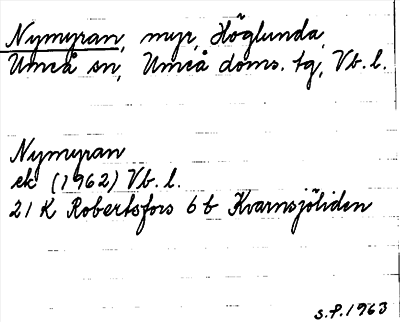 Nymyran, myr, Höglunda,
Umeå sn, Umeå doms. tg, Vb. l.
Nymyran
ek (1962) Vb. l.
21 K Robertsfors 6 b Kvarnsjöliden
S.P. 1963